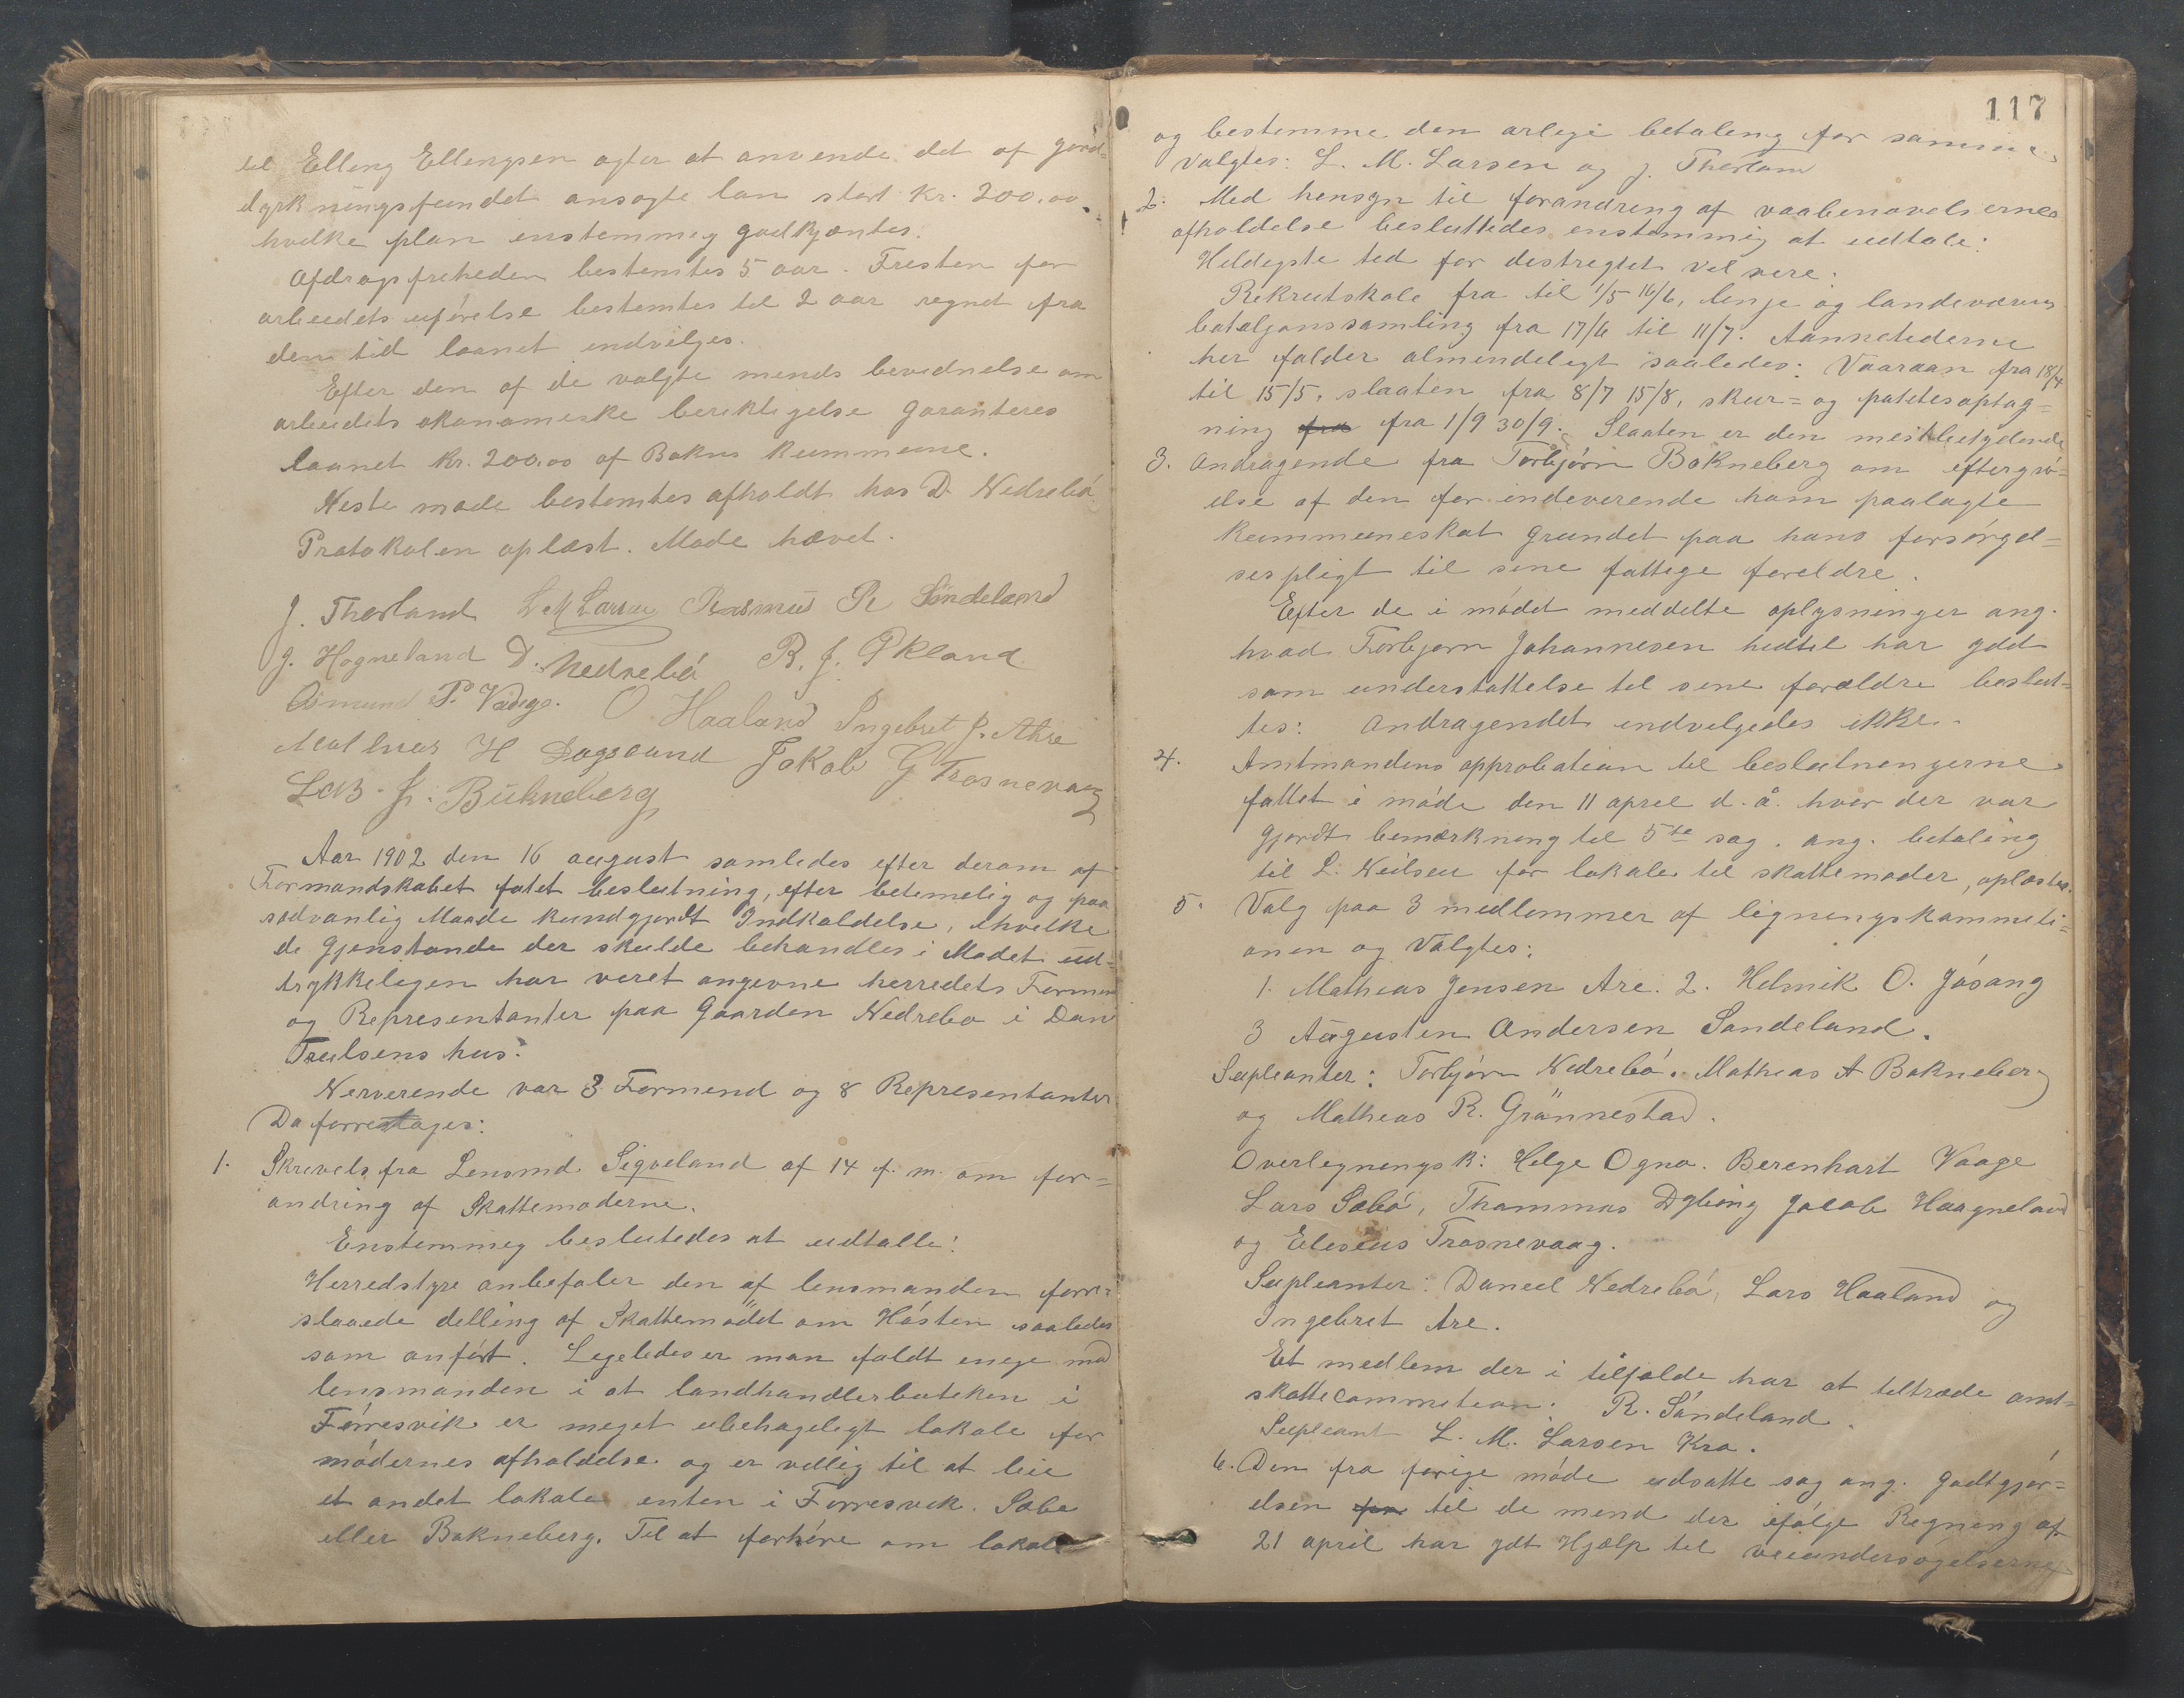 til Elling Ellingsen agter at anvende det af jord-
dyrkningsfundet ansøgte lan stort kr. 200.00.
hvilke plan enstemmig godkjæntes.
Afdragsfreheden bestemtes 5 aar. Fresten for
arbeidets uførelse bestemtes til 2 aar regnet fra
den tid laanet indvilges.
Efter den af de valgte mends bevidnelse om
arbeidets økonomiske beriktigelse garanteres
laanet kr. 200.00 af Bokns kummune.
Neste møde bestemtes afholdt hos D. Nedrebö
Protokolen oplæst. Møde hævet.
J. Thorland L M Larsen Rasmus R Søndeland
J. Hogneland D. Nedrebö R. J. Økland
Osmund P. Vadge. O Haaland Ingebret J. Are
Mathias H Dogsund Jakob G Trosnevaag
Lars J. Bukneberg
Aar 1902 den 16 august samledes efter derom af
Formandskabet fatet beslutning, efter betimelig og paa
sedvanlig Maade kundgjordt Indkaldelse, ihvilke
de Gjenstande der skulde behandles i Mødet ud-
trykkeligen har veret angevne herredets Formen
og Representanter paa Gaarden Nedrebø i Dan
Trulsens hus.
Nerverende var 3 Formend og 8 Representanter
Da forretages:
1. Skrivels fra Lensmd. Sigveland af 14 f. m. om for-
andring af Skattemøderne.
Enstemmig beslutedes at udtalle:
Herredstyre anbefaler den af lensmanden fore-
slaaede delling af Skattemødet om Høsten saaledes
som anført. Legeledes er man faldt enege med
lensmanden i at landhandlerbuteken i
Førresvik er meget ubehageligt lokale for
mödernes afholdelse og er villig til at leie
et andet lokale enten i Førresvik. Sæbø
eller Bokneberg. Til at forhöre om lokale
117
og bestemme den arlige betaling for samme.
Valgtes: L. M. Larsen og J. Thorland
2. Med hensyn til forandring af vaabenøvelsernes
afholdelse besluttedes enstemmig at udtale:
Heldigste tid for distregtet vil vere:
Rekrutskole fra til 1/5 16/6, linje og landeværns
bataljonssamling fra 17/6 til 11/7. Aannetiderne
her falder almendeligt saaledes: Vaaraan fra 18/4
til 15/5, slaaten fra 8/7 15/8, skur= og potetesoptag=
ning fra fra 1/9 30/9. Slaaten er den mestbetydende
3. Andragende fra Torbjörn Bokneberg om eftergiv-
else af den for indeverende ham paalagte
kummuneskat grundet paa hans forsörgel=
sespligt til sine fattige foreldre.
Efter de i mödet meddelte oplysninger ang.
hvad Torbjørn Johannesen hidtil har ydet
som understøttelse til sine forældre beslut=
tes: Andragendet indvilgedes ikke.
4. Amtmandens approbation til beslutningerne
fattet i möde den 11 april d. å. hvor der var
gjordt bemærkning til 5te sag. ang. betaling
til L. Neilsen for lokale til skattemøder, oplæstes.
5. Valg paa 3 medlemmer af ligningskommisi=
onen og valgtes:
1. Mathias Jensen Are. 2. Helmik O. Jösang
3 Augusten Andersen Sandeland.
Supleanter: Torbjörn Nedrebö. Mathias A Bokneberg
og Mathias R. Grönnestad.
Overligningsk: Helge Ogna. Berenhart Vaage
Lars Sæbö, Thommas Dybing Jacob Haagneland
og Eleseus Trosnevaag.
Supleanter: Daniel Nedrebö, Lars Haaland og
Ingebret Are.
Et medlem der i tilfælde har at tiltræde amt-
skattecommition. R. Söndeland.
Supleant L. M. Larsen Kro.
6. Den fra forige möde udsatte sag ang. Godtgjør=
elsen for til de mend der ifølge Regning af
21 april har ydt Hjælp til veiundersøgelserne